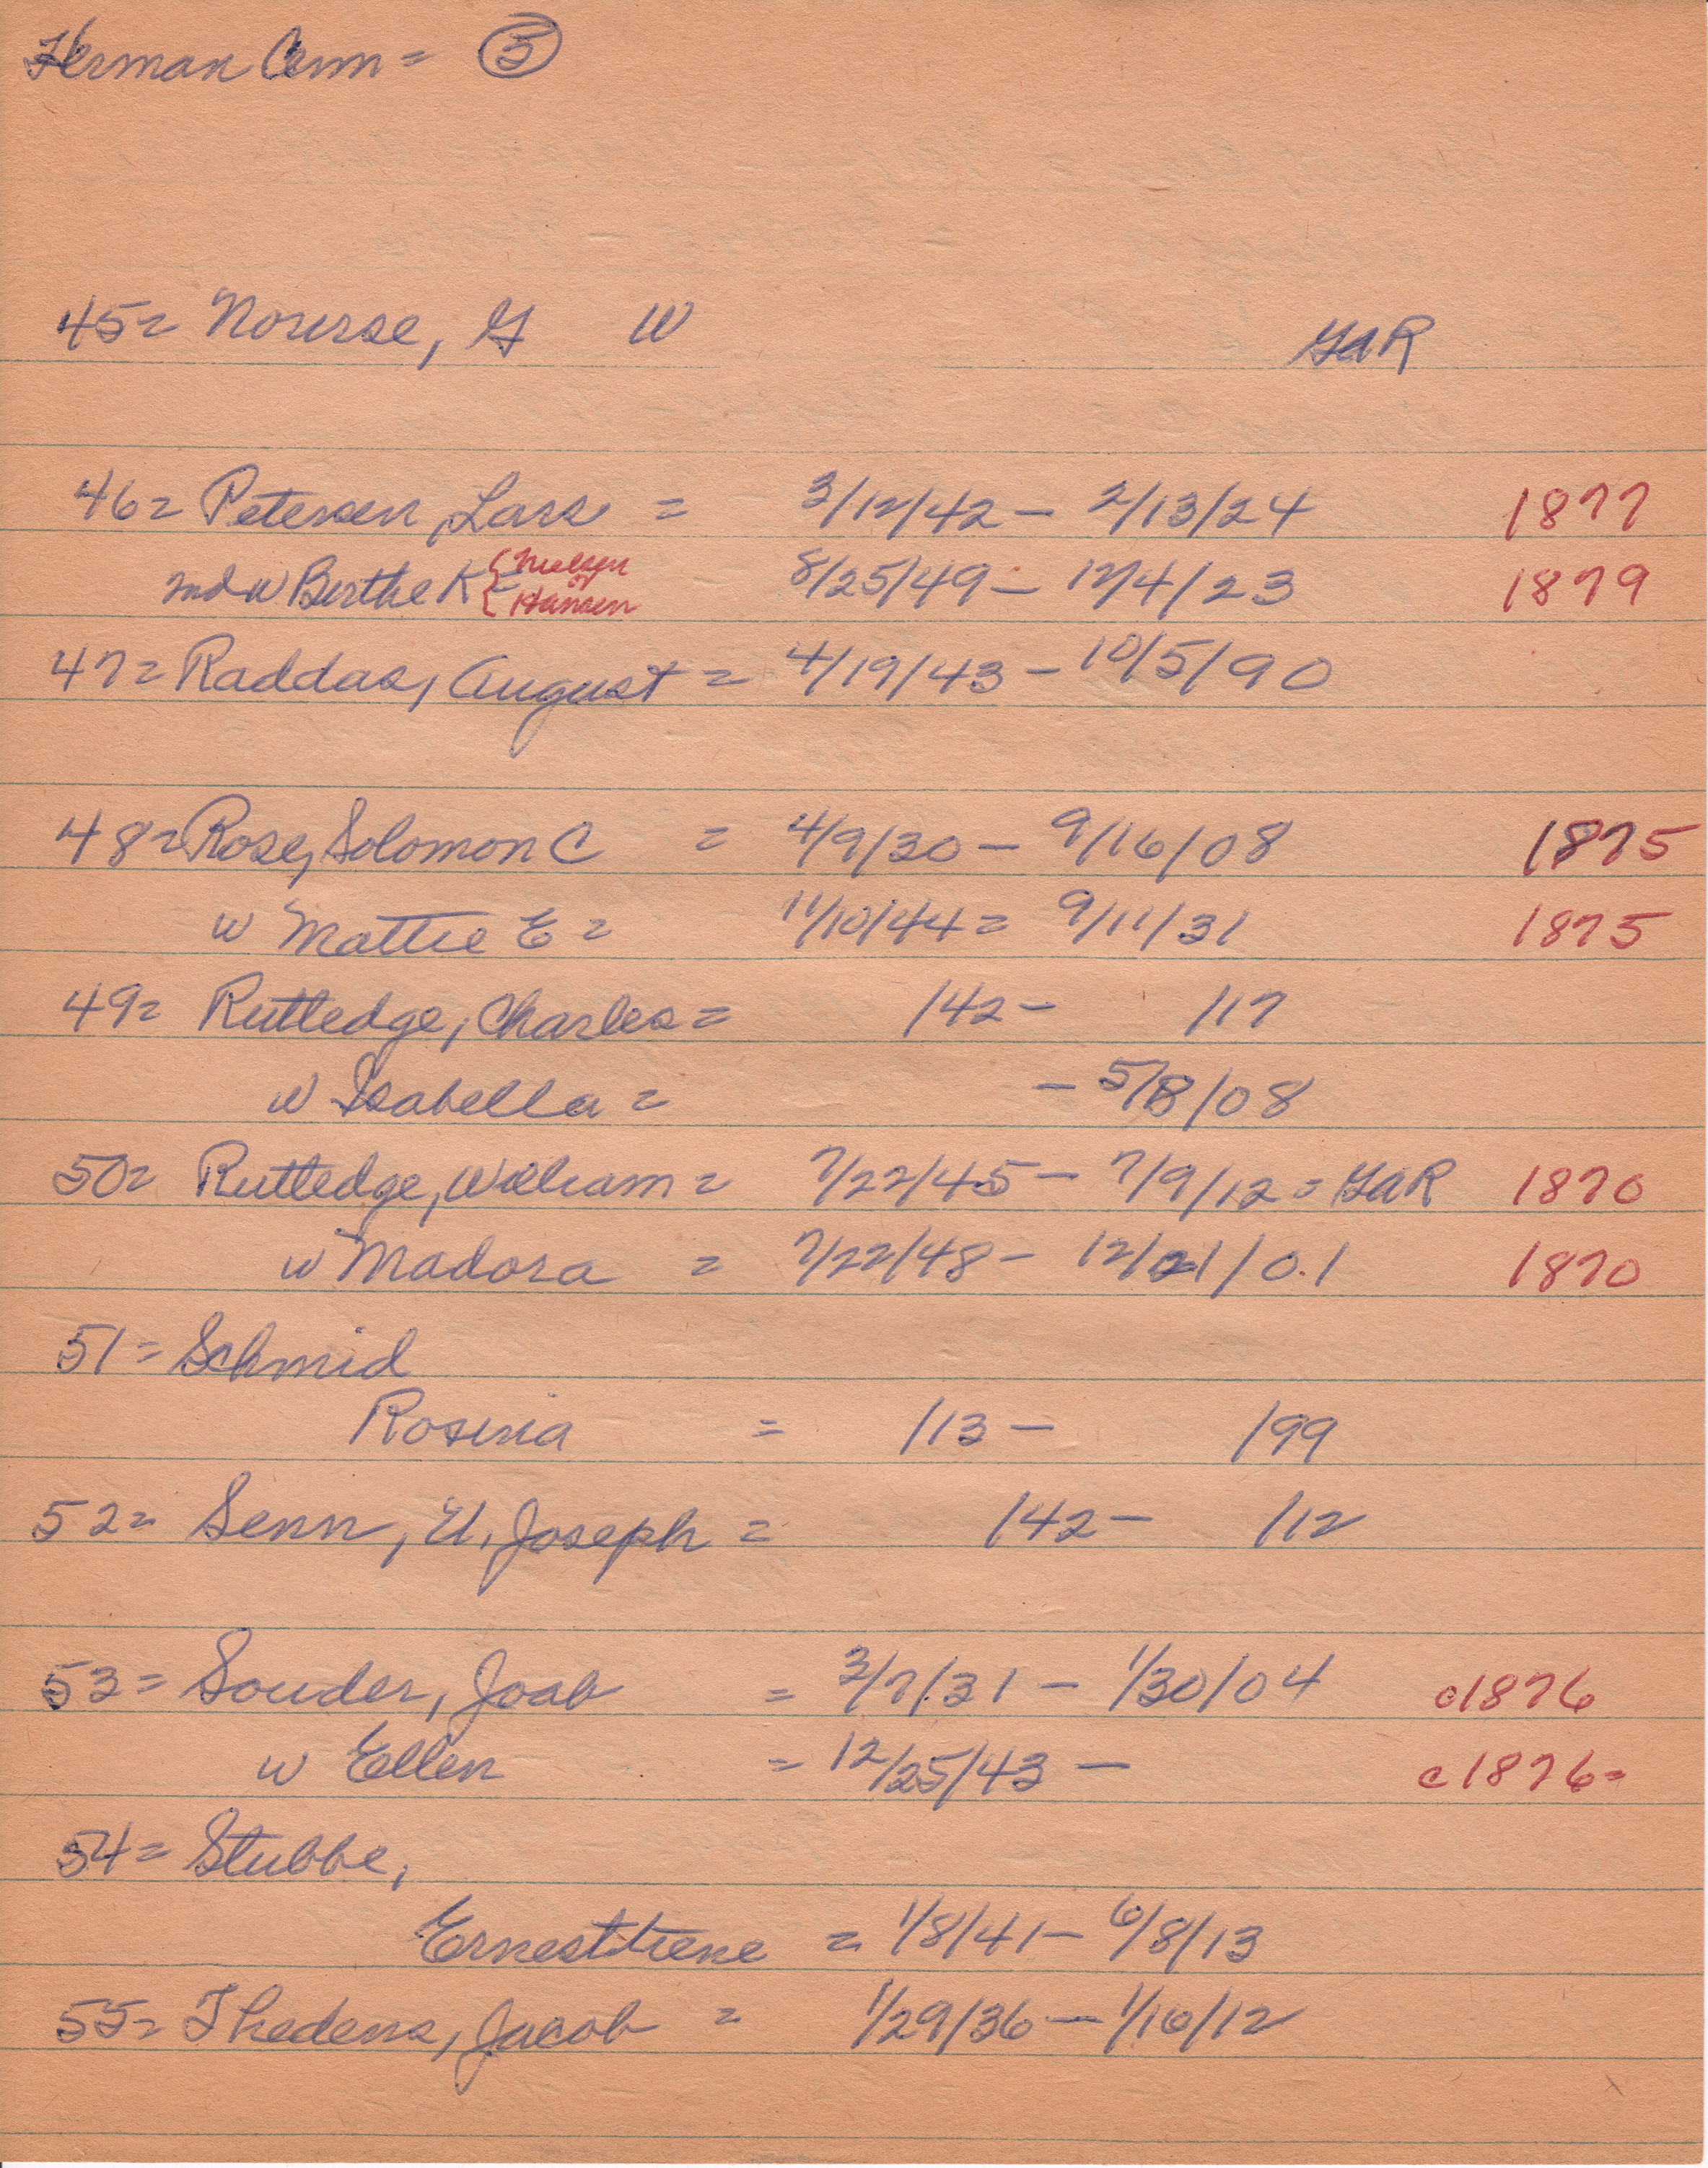 Herman Cem = 5
45= Nourse, G W GAR
46= Petersen, Lars = 3/12/42 - 2/13/24 1877
2nd w Berthe K = { Nielsen or Hansen 8/25/49 - 12/4/23 1879
47= Raddas, August = 4/19/43 - 10/5/90
48= Rose, Solomon C = 4/9/30 - 9/16/08 1875
w Mattie E = 11/10/44 = 9/11/31 1875
49= Rutledge, Charles = /42 - /17
w Isabella = - 5/8/08
50= Rutledge, William = 7/22/45 - 7/9/12 = GAR 1870
w Madora = 7/22/48 - 12/21/01 1870
51= Schmid
Rosina = /13 - /99
52= Senn, U, Joseph = /42 - /12
53= Souder, Joab = 3/7/31 - 1/30/04 c1876
w Ellen = 12/25/43 - c1876=
54= Stubbe,
Ernesttiene = 1/8/41 - 6/8/13
55= Thedens, Jacob = 1/29/36 - 1/16/12